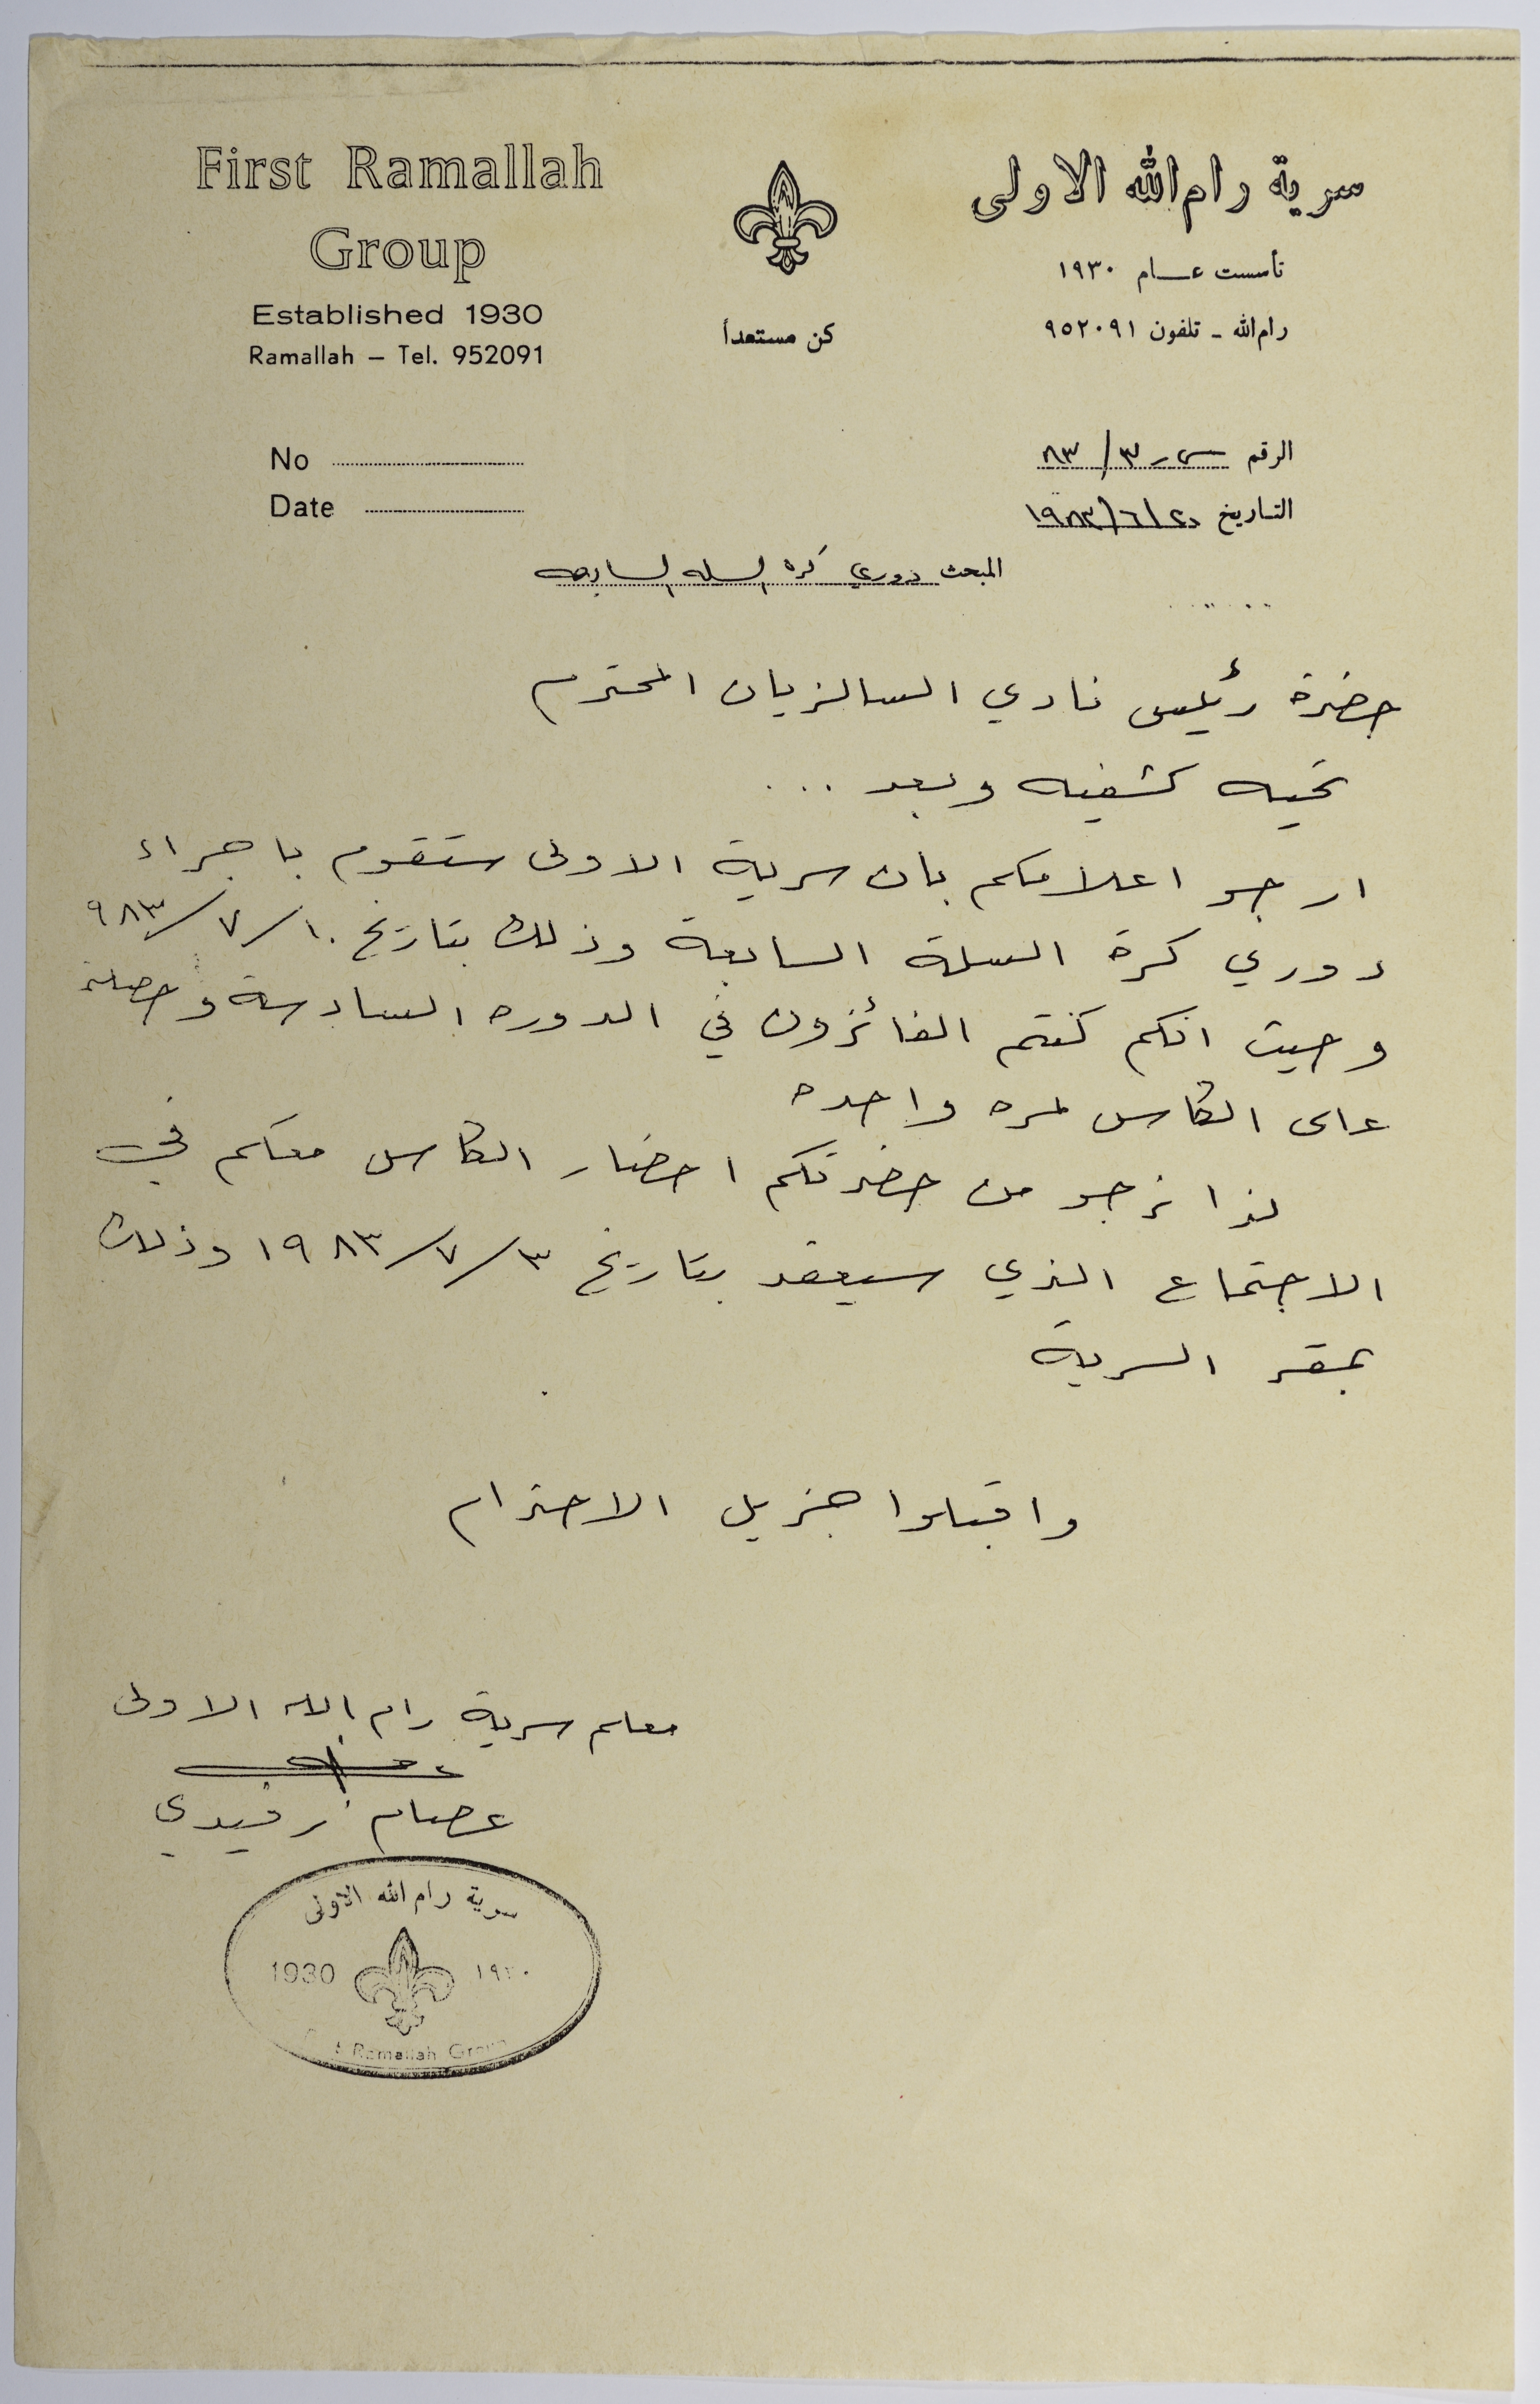 First Ramallah
Group
Established 1930
Ramallah – Tel. 952091
كن مستعداً
سرية رام الله الاولى
تأسست عام ١٩٣٠
رام الله - تلفون ٩٥٢٠٩١
No
Date
الرقم ٣/٨٣
التاريخ ٢٠/٦/١٩٨٣
المبحث دوري كرة السله السابعه
حضرة رئيس نادي السالزيان المحترم
تحيه كشفيه وبعد ...
ارجو اعلامكم بان سرية الاولى ستقوم باجراء
دوري كرة السلة السابعة وذلك بتاريخ ١٠/٧/٩٨٣
وحيث انكم كنتم الفائزون في الدوره السادسة وحصلتم
على الكاس لمره واحده
لذا نرجو من حضرتكم احضار الكاس معكم في
الاجتماع الذي سيعقد بتاريخ ٣/٧/١٩٨٣ وذلك
بمقر السرية
واقبلوا جزيل الاحترام
معلم سرية رام الله الاولى
عصام رفيدي
سرية رام الله الاولى
1930 ١٩٣٠
Ramallah Group